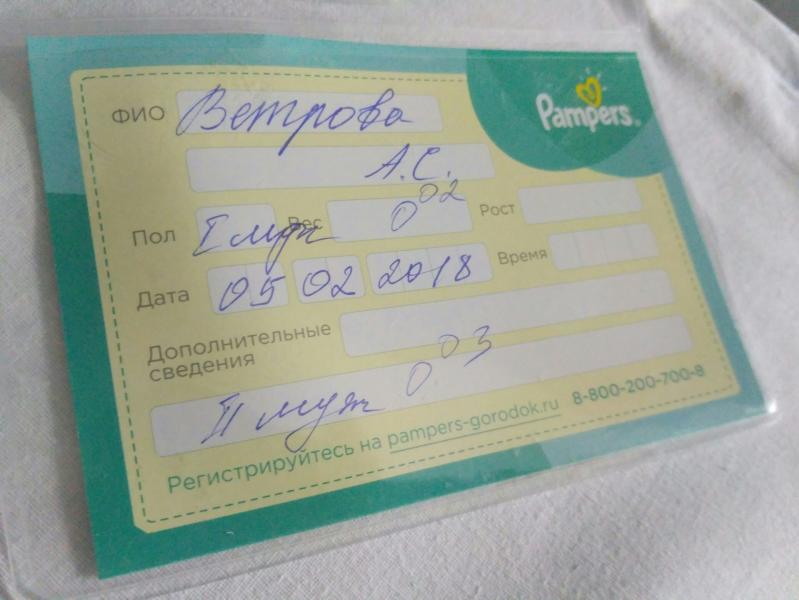 Pampers
ФИО Ветрова
А.С.
Пол I муж Вес 0 02 Рост
Дата 05 02 2018 Время
Дополнительные
сведения
II муж 0 03
Регистрируйтесь на pampers-gorodok.ru 8-800-200-700-8